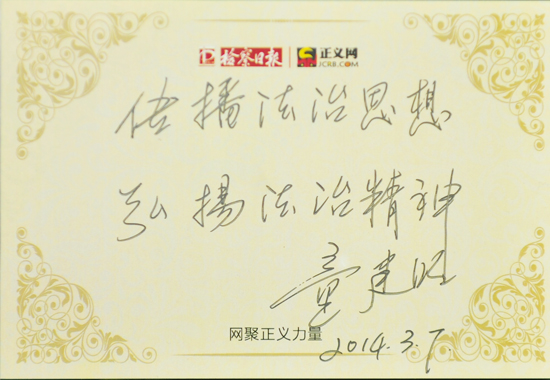 检察日报 正义网
JCRB.COM
传播法治思想
弘揚法治精神
章建旺
网聚正义力量
2014.3.7.